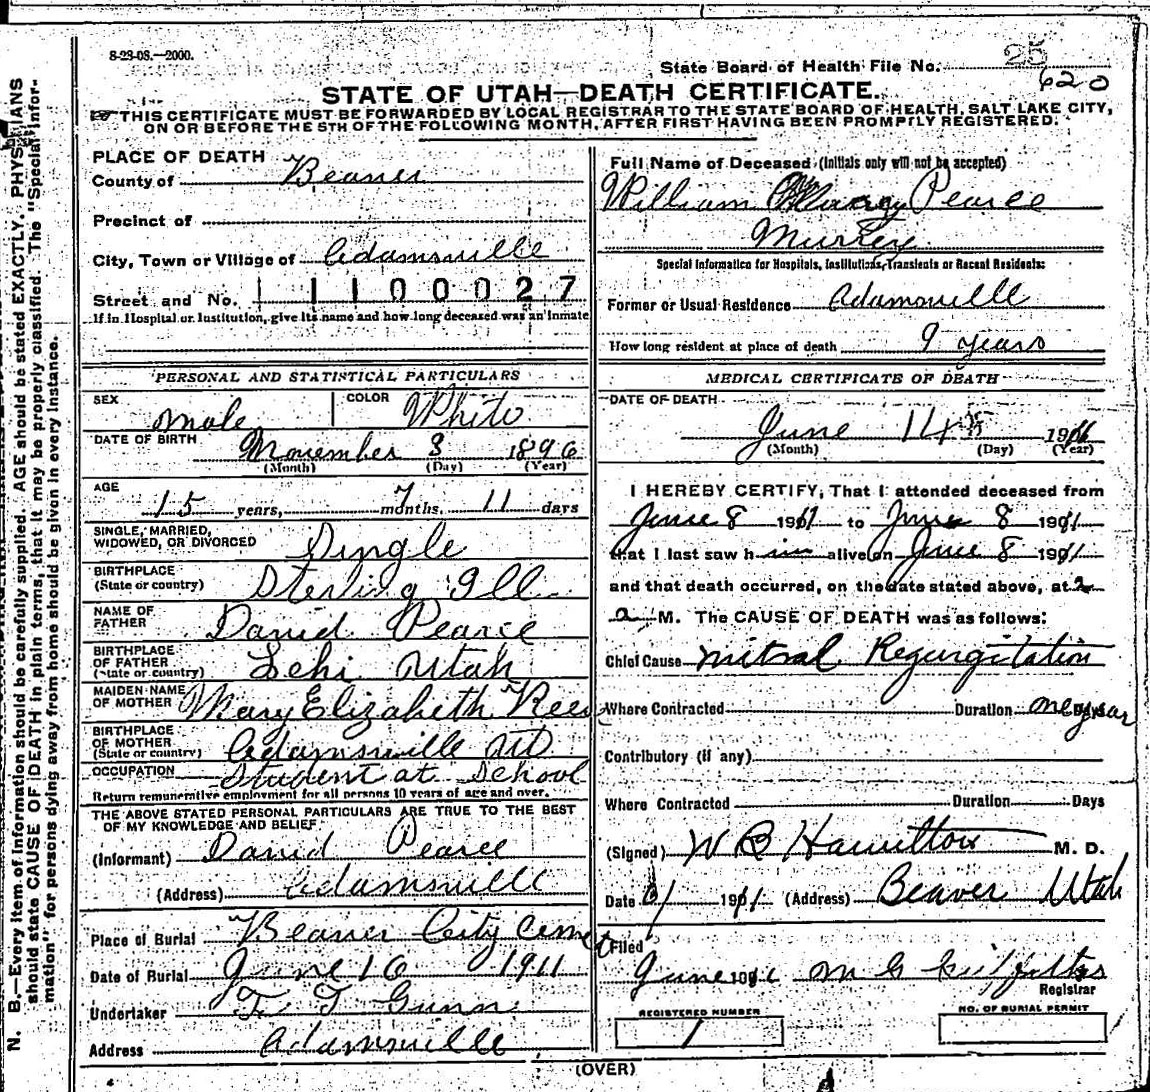 8-23-08.—2000.
State Board of Health File No. 25
620
STATE OF UTAH—DEATH CERTIFICATE.
THIS CERTIFICATE MUST BE FORWARDED BY LOCAL REGISTRAR TO THE STATE BOARD OF HEALTH, SALT LAKE CITY,
ON OR BEFORE THE 5TH OF THE FOLLOWING MONTH, AFTER FIRST HAVING BEEN PROMPTLY REGISTERED.
N. B.—Every item of information should be carefully supplied. AGE should be stated EXACTLY. PHYSICIANS
should state CAUSE OF DEATH in plain terms, that it may be properly classified. The "Special Infor-
mation" for persons dying away from home should be given in every instance.
PLACE OF DEATH
County of Beaver
Precinct of
City, Town or Village of Adamsville
Street and No. 1 1 1 0 0 0 2 7
If in Hospital or Institution, give its name and how long deceased was an inmate
PERSONAL AND STATISTICAL PARTICULARS
SEX Male COLOR White
DATE OF BIRTH November 3 1896
(Month) (Day) (Year)
AGE
15 years, 7 months, 11 days
SINGLE, MARRIED,
WIDOWED, OR DIVORCED Single
BIRTHPLACE
(State or country) Sterling Ill
NAME OF
FATHER David Pearce
BIRTHPLACE
OF FATHER
(State or country) Lehi Utah
MAIDEN NAME
OF MOTHER Mary Elizabeth Rees
BIRTHPLACE
OF MOTHER
(State or country) Adamsville Ut
OCCUPATION Student at School
Return remunerative employment for all persons 10 years of age and over.
THE ABOVE STATED PERSONAL PARTICULARS ARE TRUE TO THE BEST
OF MY KNOWLEDGE AND BELIEF
(Informant) David Pearce
(Address) Adamsville
Place of Burial Beaver City Cemet
Date of Burial June 16 1911
Undertaker T. T Gunn
Address Adamsville
Full Name of Deceased (Initials only will not be accepted)
William Pearce
Murrey
Special Information for Hospitals, Institutions, Transients or Recent Residents:
Former or Usual Residence Adamsville
How long resident at place of death 9 years
MEDICAL CERTIFICATE OF DEATH
DATE OF DEATH
June 14 19
(Month) (Day) (Year)
I HEREBY CERTIFY, That I attended deceased from
June 8 1911 to June 8 1911
that I last saw him alive on June 8 1911
and that death occurred, on the date stated above, at 2
a M. The CAUSE OF DEATH was as follows:
Chief Cause Mitral Regurgitation
Where Contracted Duration one year
Contributory (if any)
Where Contracted Duration Days
(Signed) W B Hamilton M. D.
Date 6/ 1911 (Address) Beaver Utah
Filed
June M G
Registrar
REGISTERED NUMBER
1
NO. OF BURIAL PERMIT
(OVER)